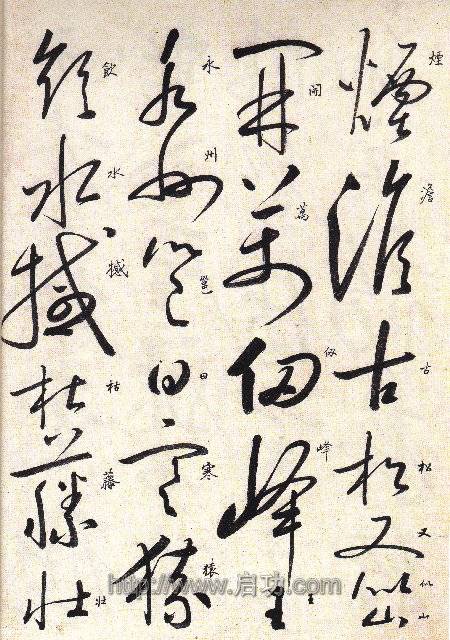 煙澹古松又似山
開萬仞峰王
永州邕曰寒猿
飲水撼枯藤壯
http://www.启功.com